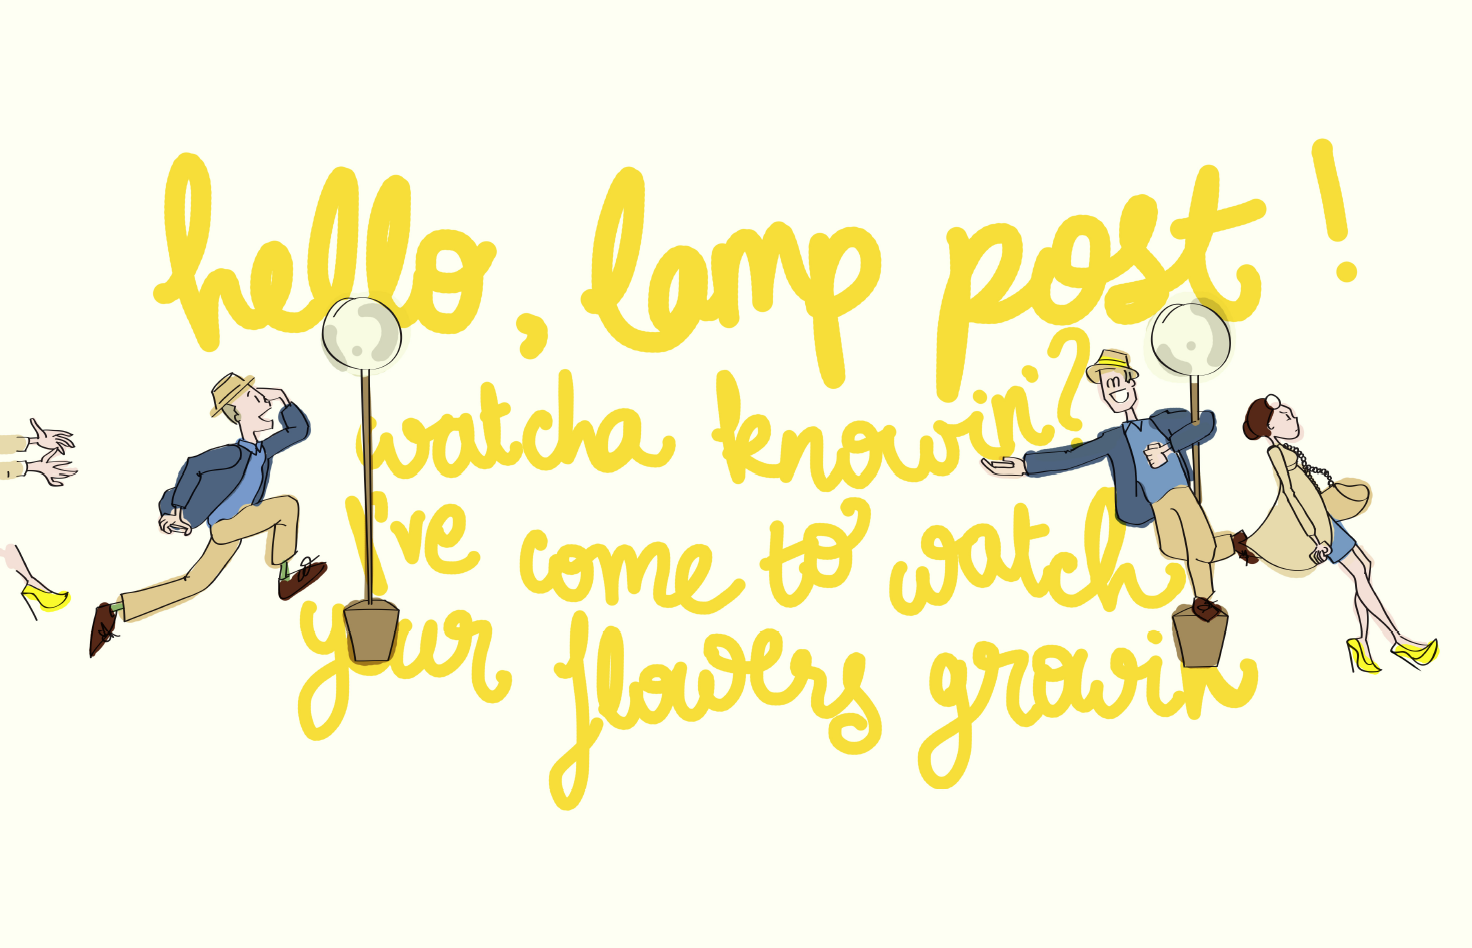 hello, lamp post!
watcha knowin?
I've come to watch
your flowers growin